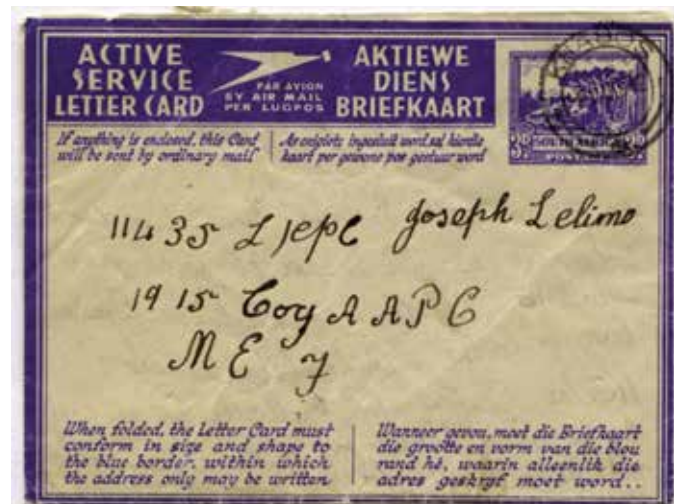 ACTIVE SERVICE LETTER CARD
PAR AVION
BY AIR MAIL
PER LUGPOS
AKTIEWE DIENS BRIEFKAART
3D SOUTH AFRICA
POSTAGE
If anything is enclosed, this Card
will be sent by ordinary mail
As enigiets ingesluit word sal hierdie
kaart per gewone pos gestuur word
11435 L/CPL Joseph Lelimo
1915 Coy A A P C
M E F
When folded, the Letter Card must
conform in size and shape to
the blue border, within which
the address only may be written
Wanneer gevou, moet die Briefkaart
die grootte en vorm van die blou
rand hê, waarin alleenlik die
adres geskryf moet word..